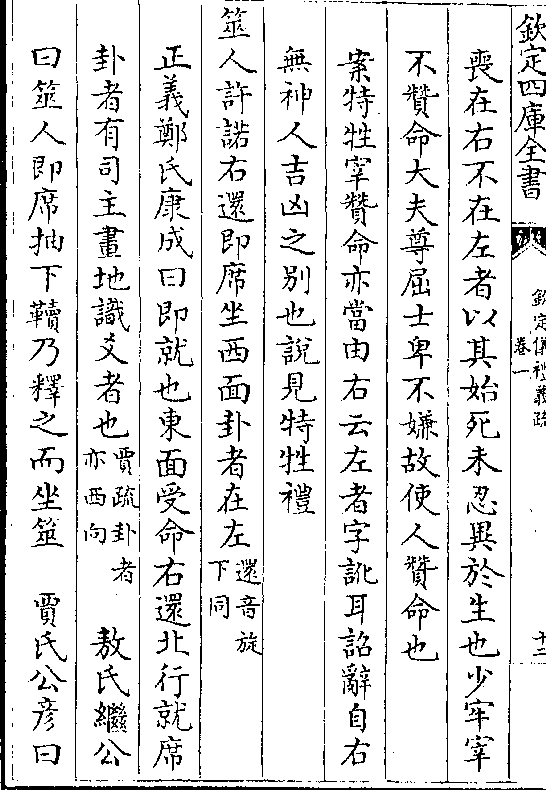 欽定四庫全書
欽定儀禮義疏
卷一
十二
喪在右不在左者以其始死未忍異於生也少牢宰
不贊命大夫尊屈士卑不嫌故使人贊命也
案特牲宰贊命亦當由右云左者字訛耳詔辭自右
無神人吉凶之別也說見特牲禮
筮人許諾右還即席坐西面卦者在左還音旋下同
正義鄭氏康成曰即就也東面受命右還北行就席
卦者有司主畫地識爻者也賈疏卦者亦西向 敖氏繼公
曰筮人即席抽下韇乃釋之而坐筮 賈氏公彥曰